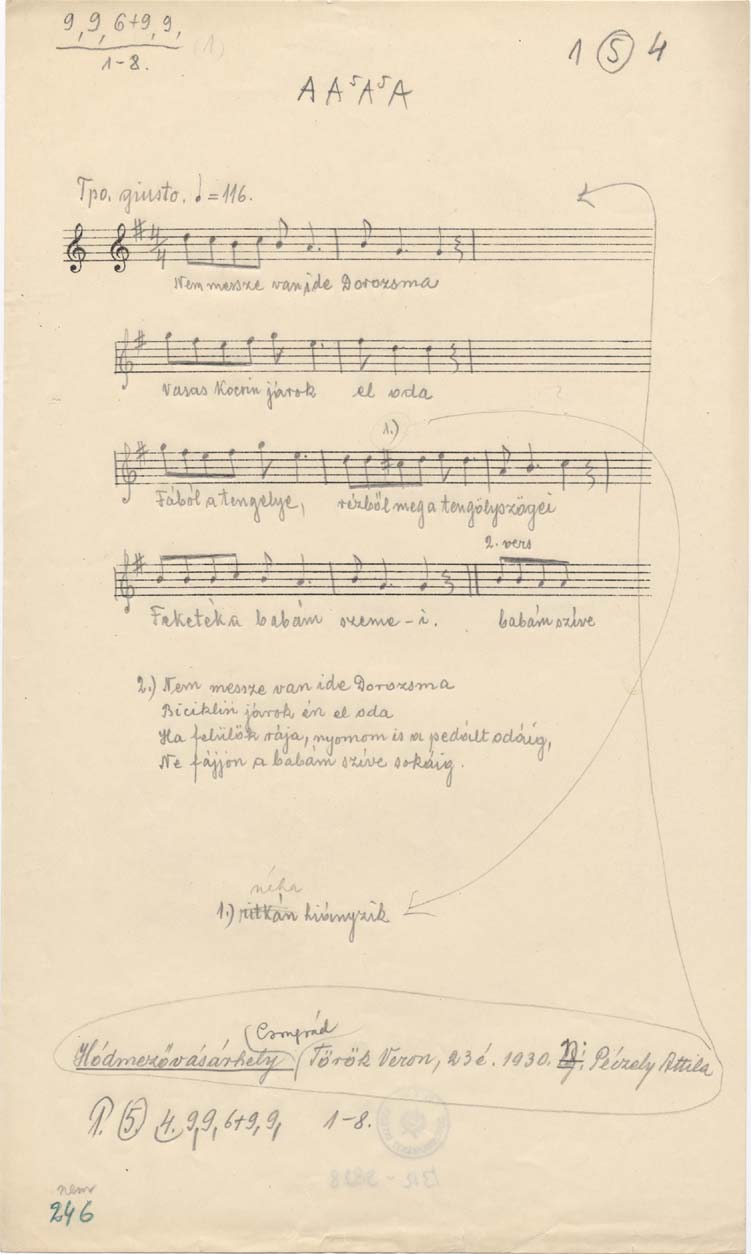 9, 9, 6+9, 9,
1-8.
(1)
1 5 4
A A⁵ A⁵ A
Tpo. giusto. ♩=116.
Nem messze van ide Dorozsma
Vasas kocsin járok el oda
1.)
Fából a tengelye, rézből meg a tengölyszögei
2. vers
Feketék a babám szeme-i. babám szíve
2.) Nem messze van ide Dorozsma
Biciklin járok én el oda
Ha felülök rája, nyomom is a pedált odáig,
Ne fájjon a babám szíve sokáig.
néha
1.) ritkán hiányzik
Csongrád
Hódmezővásárhely Török Veron, 23 é. 1930. Péczely Attila
1. 5. 4. 9, 9, 6+9, 9, 1-8.
nem
246